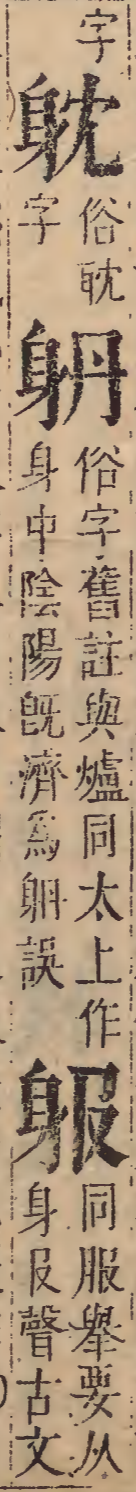 字
躭俗耽
字
𨈖俗字舊註與爐同太上作
身中陰陽旣濟爲𨈖誤
𨈛同服舉要从
身𠬝聲古文